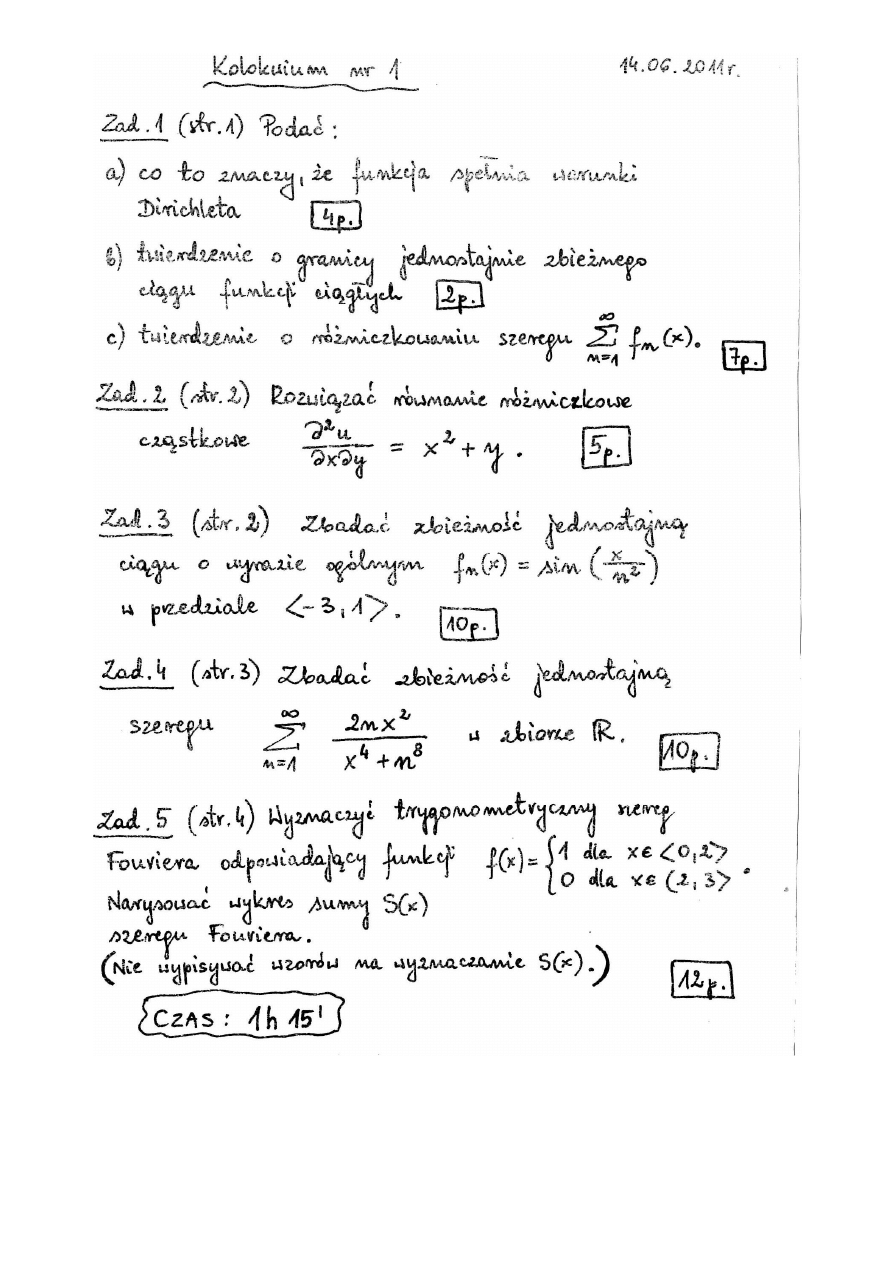 Kolokwium nr 1 14.06.2011r.
Zad.1 (str.1) Podać:
a) co to znaczy, że funkcja spełnia warunki
Dirichleta 4p.
b) twierdzenie o granicy jednostajnie zbieżnego
ciągu funkcji ciągłych 2p.
c) twierdzenie o różniczkowaniu szeregu ∑_{n=1}^{∞} fₙ(x). 7p.
Zad.2 (str.2) Rozwiązać równanie różniczkowe
cząstkowe ∂²u/∂x∂y = x² + y. 5p.
Zad.3 (str.2) Zbadać zbieżność jednostajną
ciągu o wyrazie ogólnym fₙ(x) = sin (x/n²)
w przedziale <-3,1>. 10p.
Zad.4 (str.3) Zbadać zbieżność jednostajną
szeregu ∑_{n=1}^{∞} 2nx²/(x⁴+n⁸) w zbiorze ℝ. 10p.
Zad.5 (str.4) Wyznaczyć trygonometryczny szereg
Fouriera odpowiadający funkcji f(x)= { 1 dla x∈<0,2>
0 dla x∈(2,3> .
Narysować wykres sumy S(x)
szeregu Fouriera.
(Nie wypisywać wzorów na wyznaczanie S(x).) 12p.
CZAS: 1h 15'